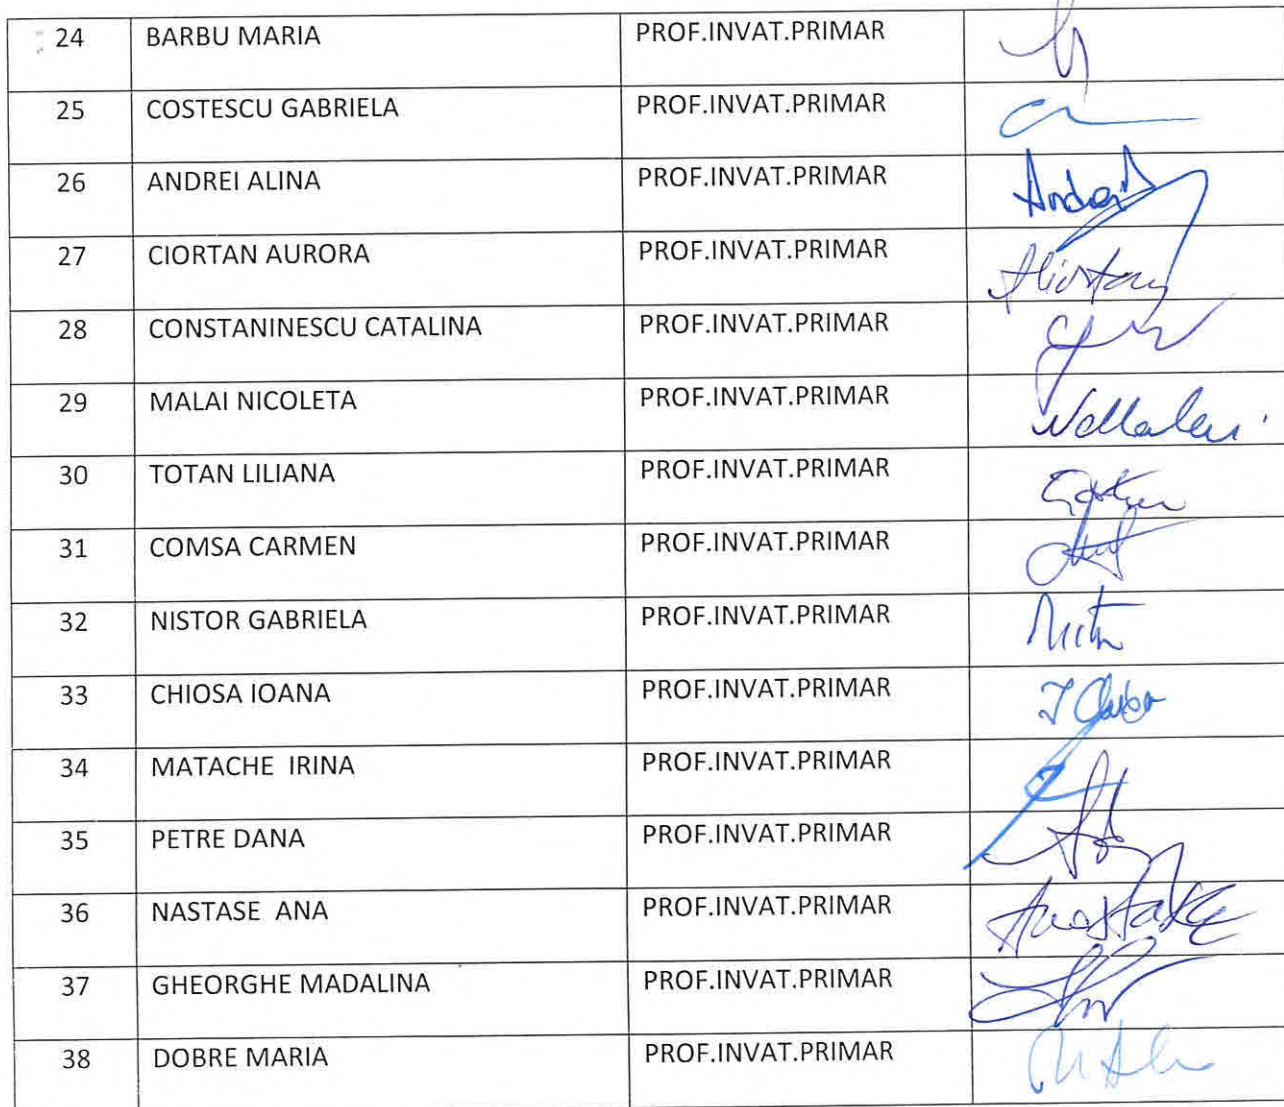 24 BARBU MARIA PROF.INVAT.PRIMAR
25 COSTESCU GABRIELA PROF.INVAT.PRIMAR
26 ANDREI ALINA PROF.INVAT.PRIMAR
27 CIORTAN AURORA PROF.INVAT.PRIMAR
28 CONSTANINESCU CATALINA PROF.INVAT.PRIMAR
29 MALAI NICOLETA PROF.INVAT.PRIMAR
30 TOTAN LILIANA PROF.INVAT.PRIMAR
31 COMSA CARMEN PROF.INVAT.PRIMAR
32 NISTOR GABRIELA PROF.INVAT.PRIMAR
33 CHIOSA IOANA PROF.INVAT.PRIMAR
34 MATACHE IRINA PROF.INVAT.PRIMAR
35 PETRE DANA PROF.INVAT.PRIMAR
36 NASTASE ANA PROF.INVAT.PRIMAR
37 GHEORGHE MADALINA PROF.INVAT.PRIMAR
38 DOBRE MARIA PROF.INVAT.PRIMAR